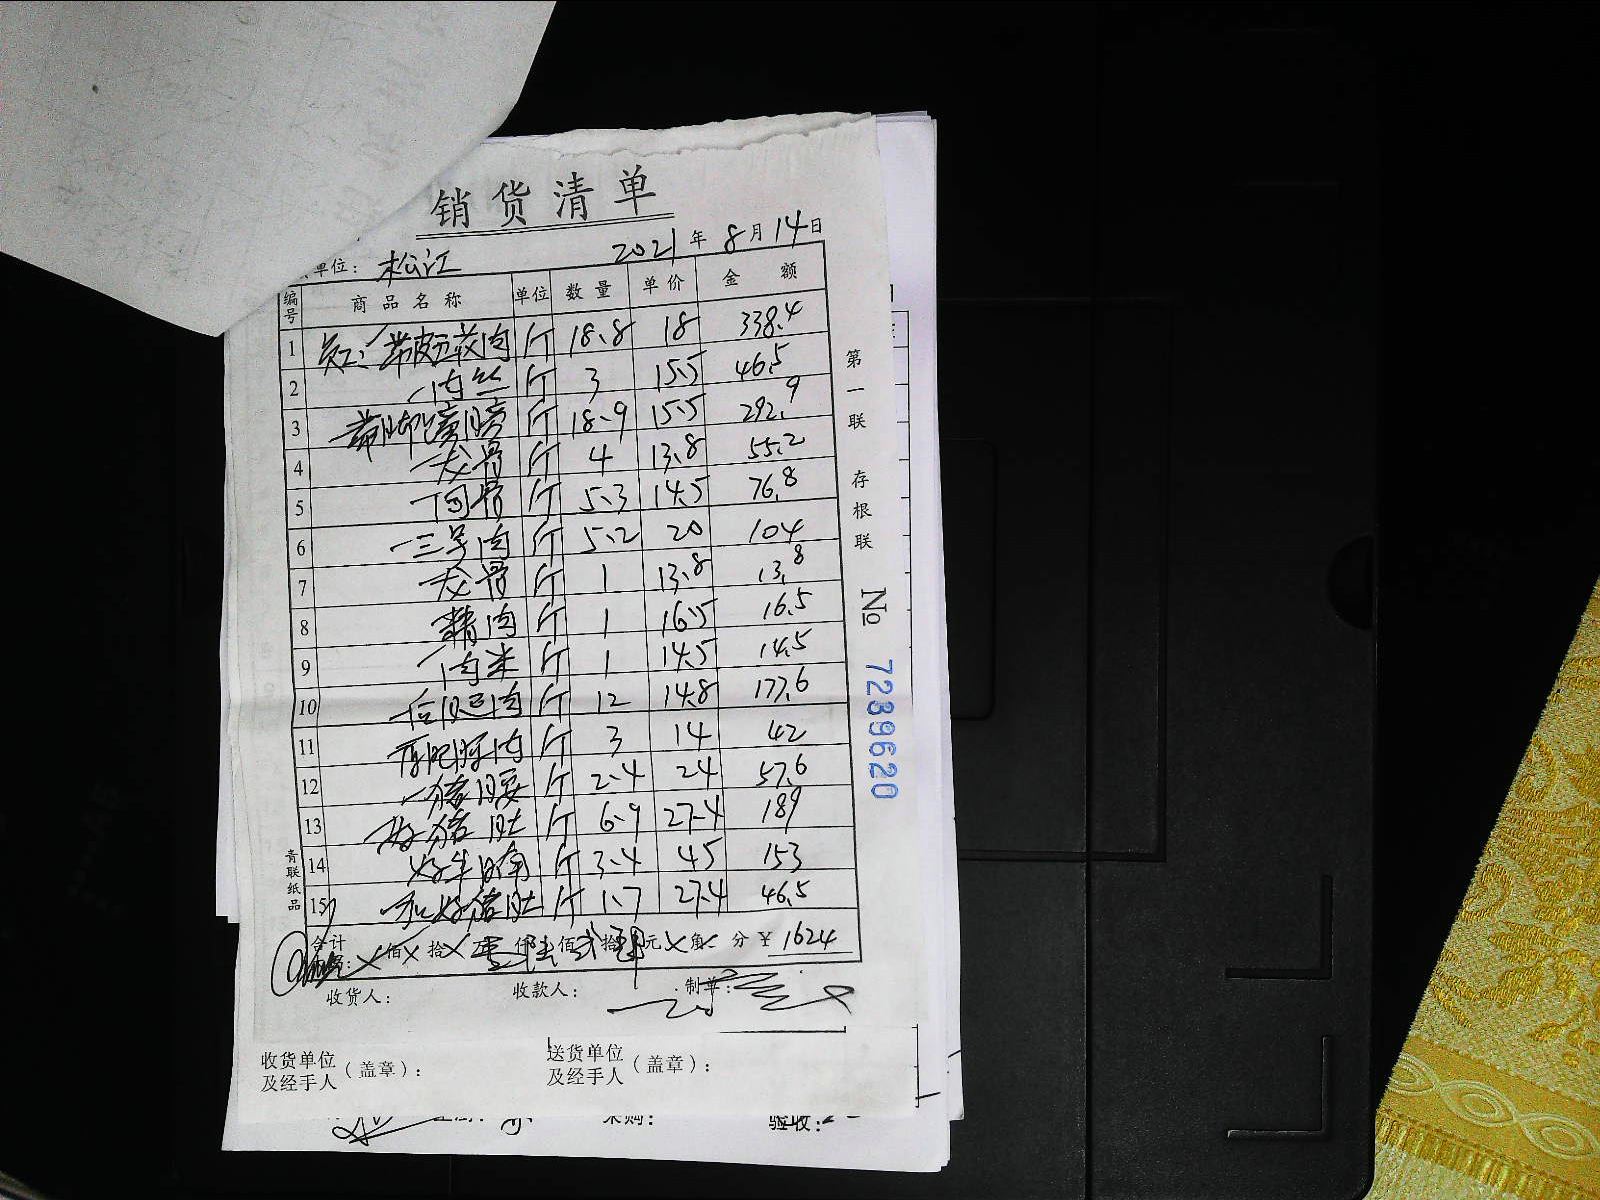 销货清单
单位：松江 2021年8月14日
编号 商品名称 单位 数量 单价 金额
1 带皮五花肉 斤 18.8 18 338.4
2 肉丝 斤 3 15.5 46.5
3 斤 18.9 15.5 292.9
4 龙骨 斤 4 13.8 55.2
5 骨 斤 5.3 14.5 76.8
6 三号肉 斤 5.2 20 104
7 龙骨 斤 1 13.8 13.8
8 精肉 斤 1 16.5 16.5
9 肉米 斤 1 14.5 14.5
10 肉 斤 12 14.8 177.6
11 肉 斤 3 14 42
12 猪腰 斤 2.4 24 57.6
13 好猪肚 斤 6.9 27.4 189
14 好牛腩 斤 3.4 45 153
15 好猪肚 斤 1.7 27.4 46.5
合计 佰 拾 万 仟 佰 拾 元 角 分 ¥ 1624
收货人： 收款人： 制单：
第一联 存根联
№ 7289620
青联纸品
收货单位及经手人（盖章）： 送货单位及经手人（盖章）：
采购： 验收：